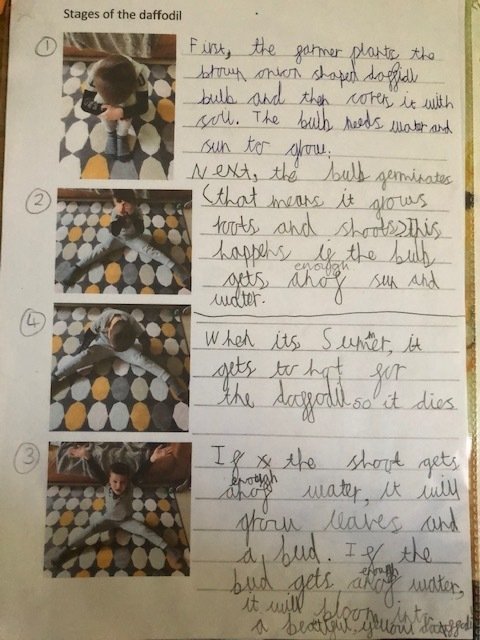 Stages of the daffodil
1
First, the farmer plants the
brown onion shaped daffodil
bulb and then covers it with
soil. The bulb needs water and
sun to grow.
2
Next, the bulb germinates
(that means it grows
roots and shoots) This
happens if the bulb
enough
gets anof sun and
water.
4
When its Summer, it
gets to hot for
the daffodil so it dies
3
If the shoot gets
enough
anof water, it will
grow leaves and
a bud. If the
enough
bud gets anof water,
it will bloom into
a beatiful yellow daffodil